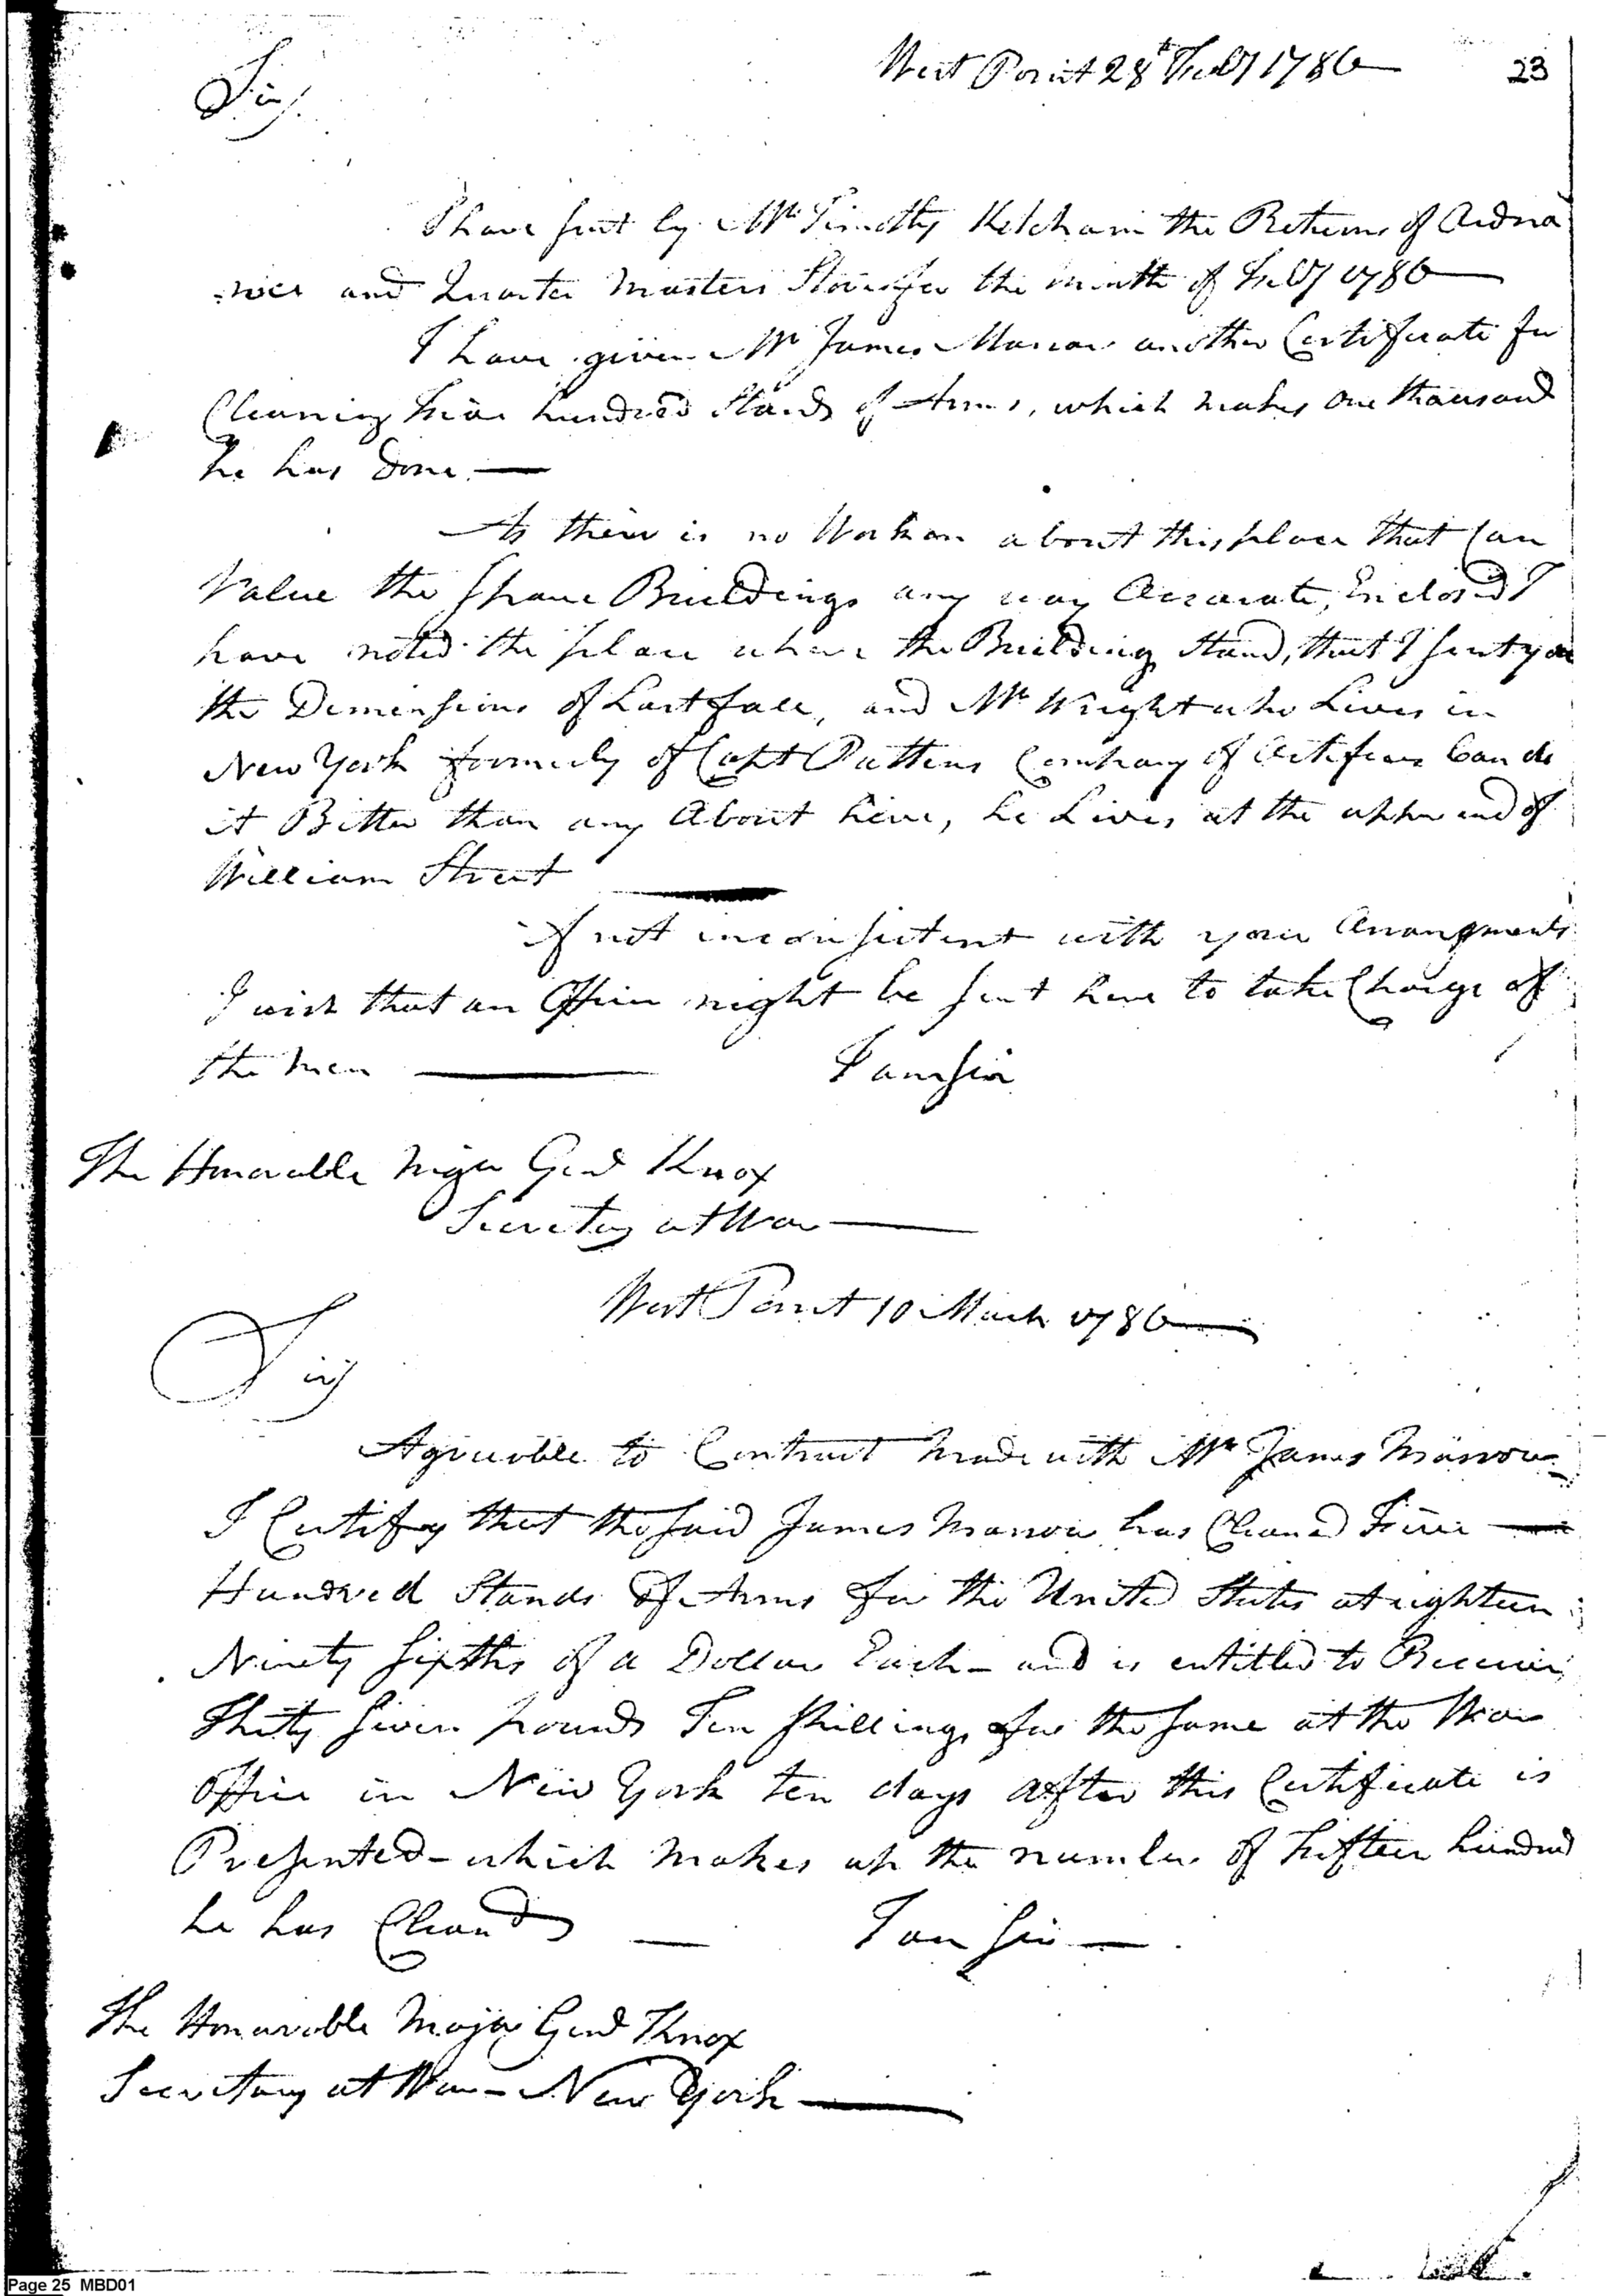 West Point 28th Feby 1786 23
Sir,
I have sent by Mr Timothy Ketcham the Returns of Ordna
nces and Quarter Masters Stores for the month of Feby 1786
I have given Mr James Marrow another Certificate for
Cleaning five hundred Stands of Arms, which makes one thousand
he has Done.
As there is no Workman about this place that Can
Value the spare Buildings any way Accurate, Enclosed I
have noted the place where the Building Stand, that I sent you
the Dimensions of Last fall, and Mr Wright who Lives in
New York formerly of Capt Pattens Company of Artificers Can do
it Better than any About here, he Lives at the upper end of
William Street
If not inconsistent with your Arrangments
I wish that an Officer might be sent here to take Charge of
the men I am Sir
The Honorable Major Genl Knox
Secretary at War
West Point 10 March 1786
Sir
Agreeable to Contract made with Mr James Marrow
I Certify that the said James Marrow has Cleaned Five
Hundred Stands of Arms for the United States at eighteen
Ninety Sixths of a Dollar Each - and is entitled to Receive
Thirty Seven pounds Ten Shillings for the same at the War
Office in New York ten days after this Certificate is
Presented - which makes up the number of fifteen hundred
he has Cleaned I am Sir
The Honourable Major Genl Knox
Secretary at War - New York
Page 25 MBD01